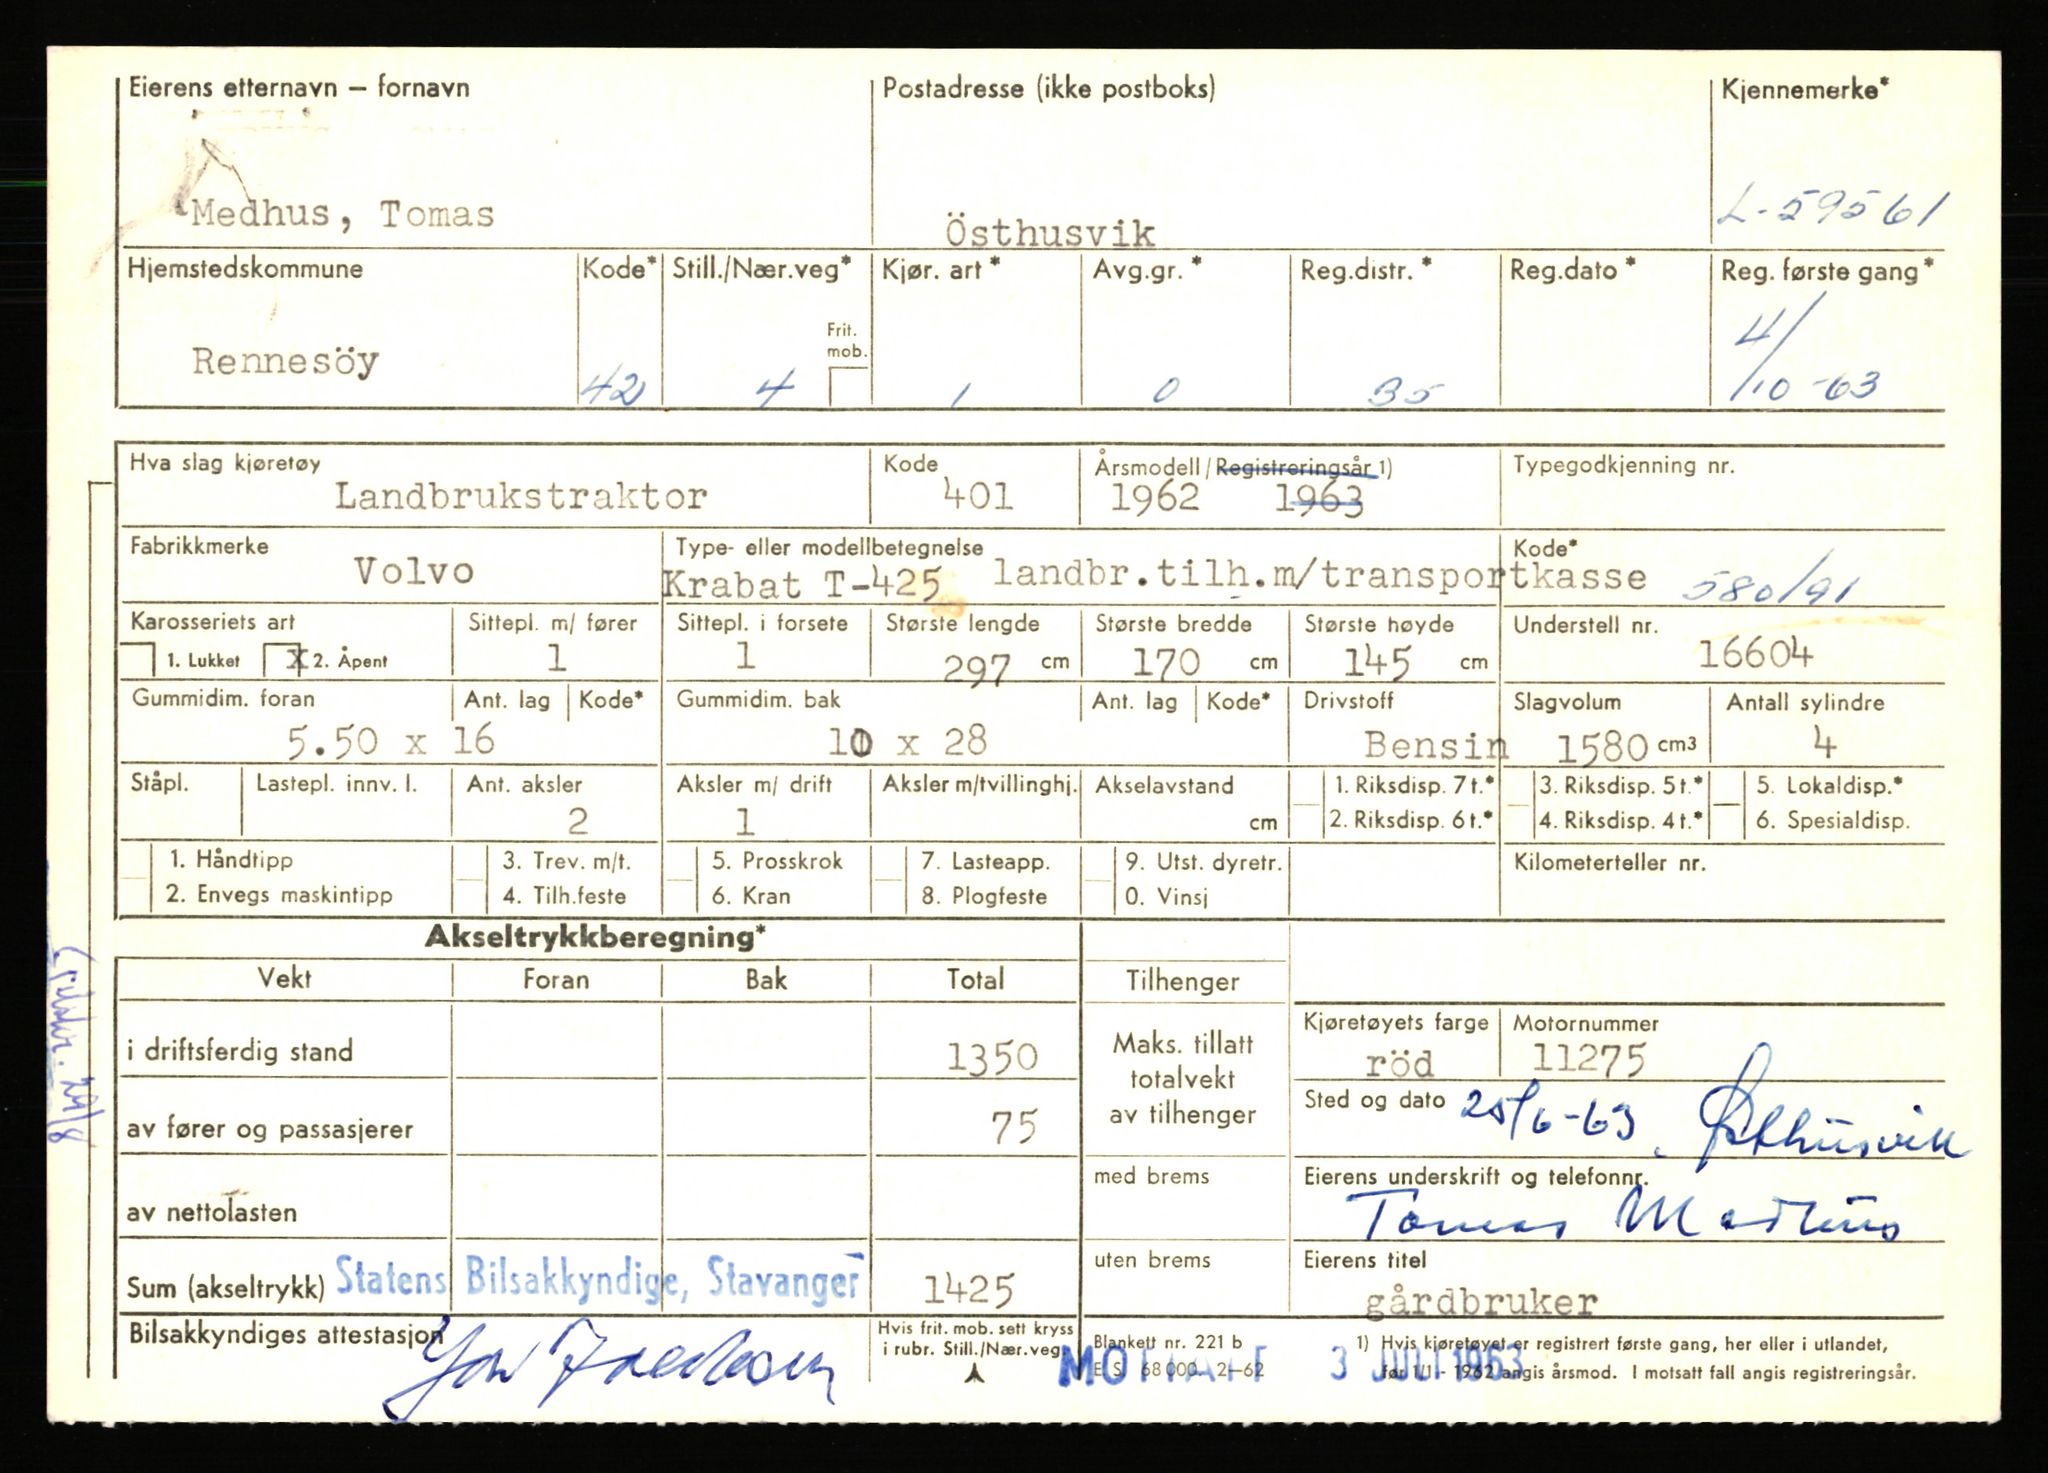 Eierens etternavn – fornavn Postadresse (ikke postboks) Kjennemerke*
Medhus, Tomas Östhusvik L-59561
Hjemstedskommune Kode* Still./Nær.veg* Kjør. art * Avg.gr. * Reg.distr. * Reg.dato * Reg. første gang*
Frit. mob.
Rennesöy 42 4 1 0 35 4/10-63
Hva slag kjøretøy Kode Årsmodell / Registreringsår 1) Typegodkjenning nr.
Landbrukstraktor 401 1962 1963
Fabrikkmerke Type- eller modellbetegnelse Kode*
Volvo Krabat T-425 landbr.tilh.m/transportkasse 580/91
Karosseriets art Sittepl. m/ fører Sittepl. i forsete Største lengde Største bredde Største høyde Understell nr.
1. Lukket X 2. Åpent 1 1 297 cm 170 cm 145 cm 16604
Gummidim. foran Ant. lag Kode* Gummidim. bak Ant. lag Kode* Drivstoff Slagvolum Antall sylindre
5.50 x 16 10 x 28 Bensin 1580 cm3 4
Ståpl. Lastepl. innv. l. Ant. aksler Aksler m/ drift Aksler m/tvillinghj. Akselavstand 1. Riksdisp. 7 t.* 3. Riksdisp. 5 t.* 5. Lokaldisp.*
2 1 cm 2. Riksdisp. 6 t.* 4. Riksdisp. 4 t.* 6. Spesialdisp.
1. Håndtipp 3. Trev. m/t. 5. Prosskrok 7. Lasteapp. 9. Utst. dyretr. Kilometerteller nr.
2. Envegs maskintipp 4. Tilh.feste 6. Kran 8. Plogfeste 0. Vinsj
Akseltrykkberegning*
Vekt Foran Bak Total Tilhenger
i driftsferdig stand 1350
av fører og passasjerer 75
av nettolasten
Sum (akseltrykk) Statens Bilsakkyndige, Stavanger 1425
Maks. tillatt
totalvekt
av tilhenger
med brems
uten brems
Kjøretøyets farge Motornummer
röd 11275
Sted og dato 25/6-63, Østhusvik
Eierens underskrift og telefonnr.
Tomas Medhus
Eierens titel
gårdbruker
Bilsakkyndiges attestasjon
Hvis frit. mob. sett kryss
i rubr. Still./Nær.veg
Blankett nr. 221 b
E. S. 68 000. 2–62
MOTTATT 3 JULI 1963
1) Hvis kjøretøyet er registrert første gang, her eller i utlandet,
før 1/1 - 1962 angis årsmod. I motsatt fall angis registreringsår.
29/8